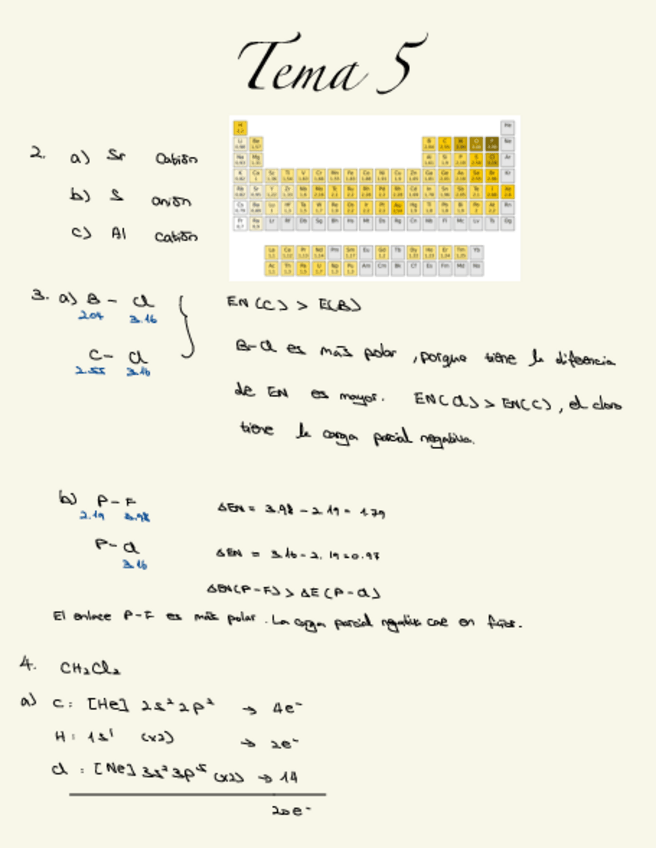 Tema 5
2. a) Sr Catión
b) S anión
c) Al catión
3. a) B - Cl
2.04 3.16
C - Cl
2.55 3.16
EN(C) > E(B)
B-Cl es más polar, porque tiene la diferencia
de EN es mayor. EN(Cl) > EN(C), el cloro
tiene la carga parcial negativa.
b) P-F
2.19 3.98
P-Cl
3.16
ΔEN = 3.98 - 2.19 = 1.79
ΔEN = 3.16 - 2.19 = 0.97
ΔEN(P-F) > ΔE(P-Cl)
El enlace P-F es más polar. La carga parcial negativa cae en flúor.
4. CH₂Cl₂
a) C: [He] 2s² 2p² → 4e⁻
H: 1s¹ (x2) → 2e⁻
Cl: [Ne] 3s² 3p⁵ (x2) → 14
20e⁻